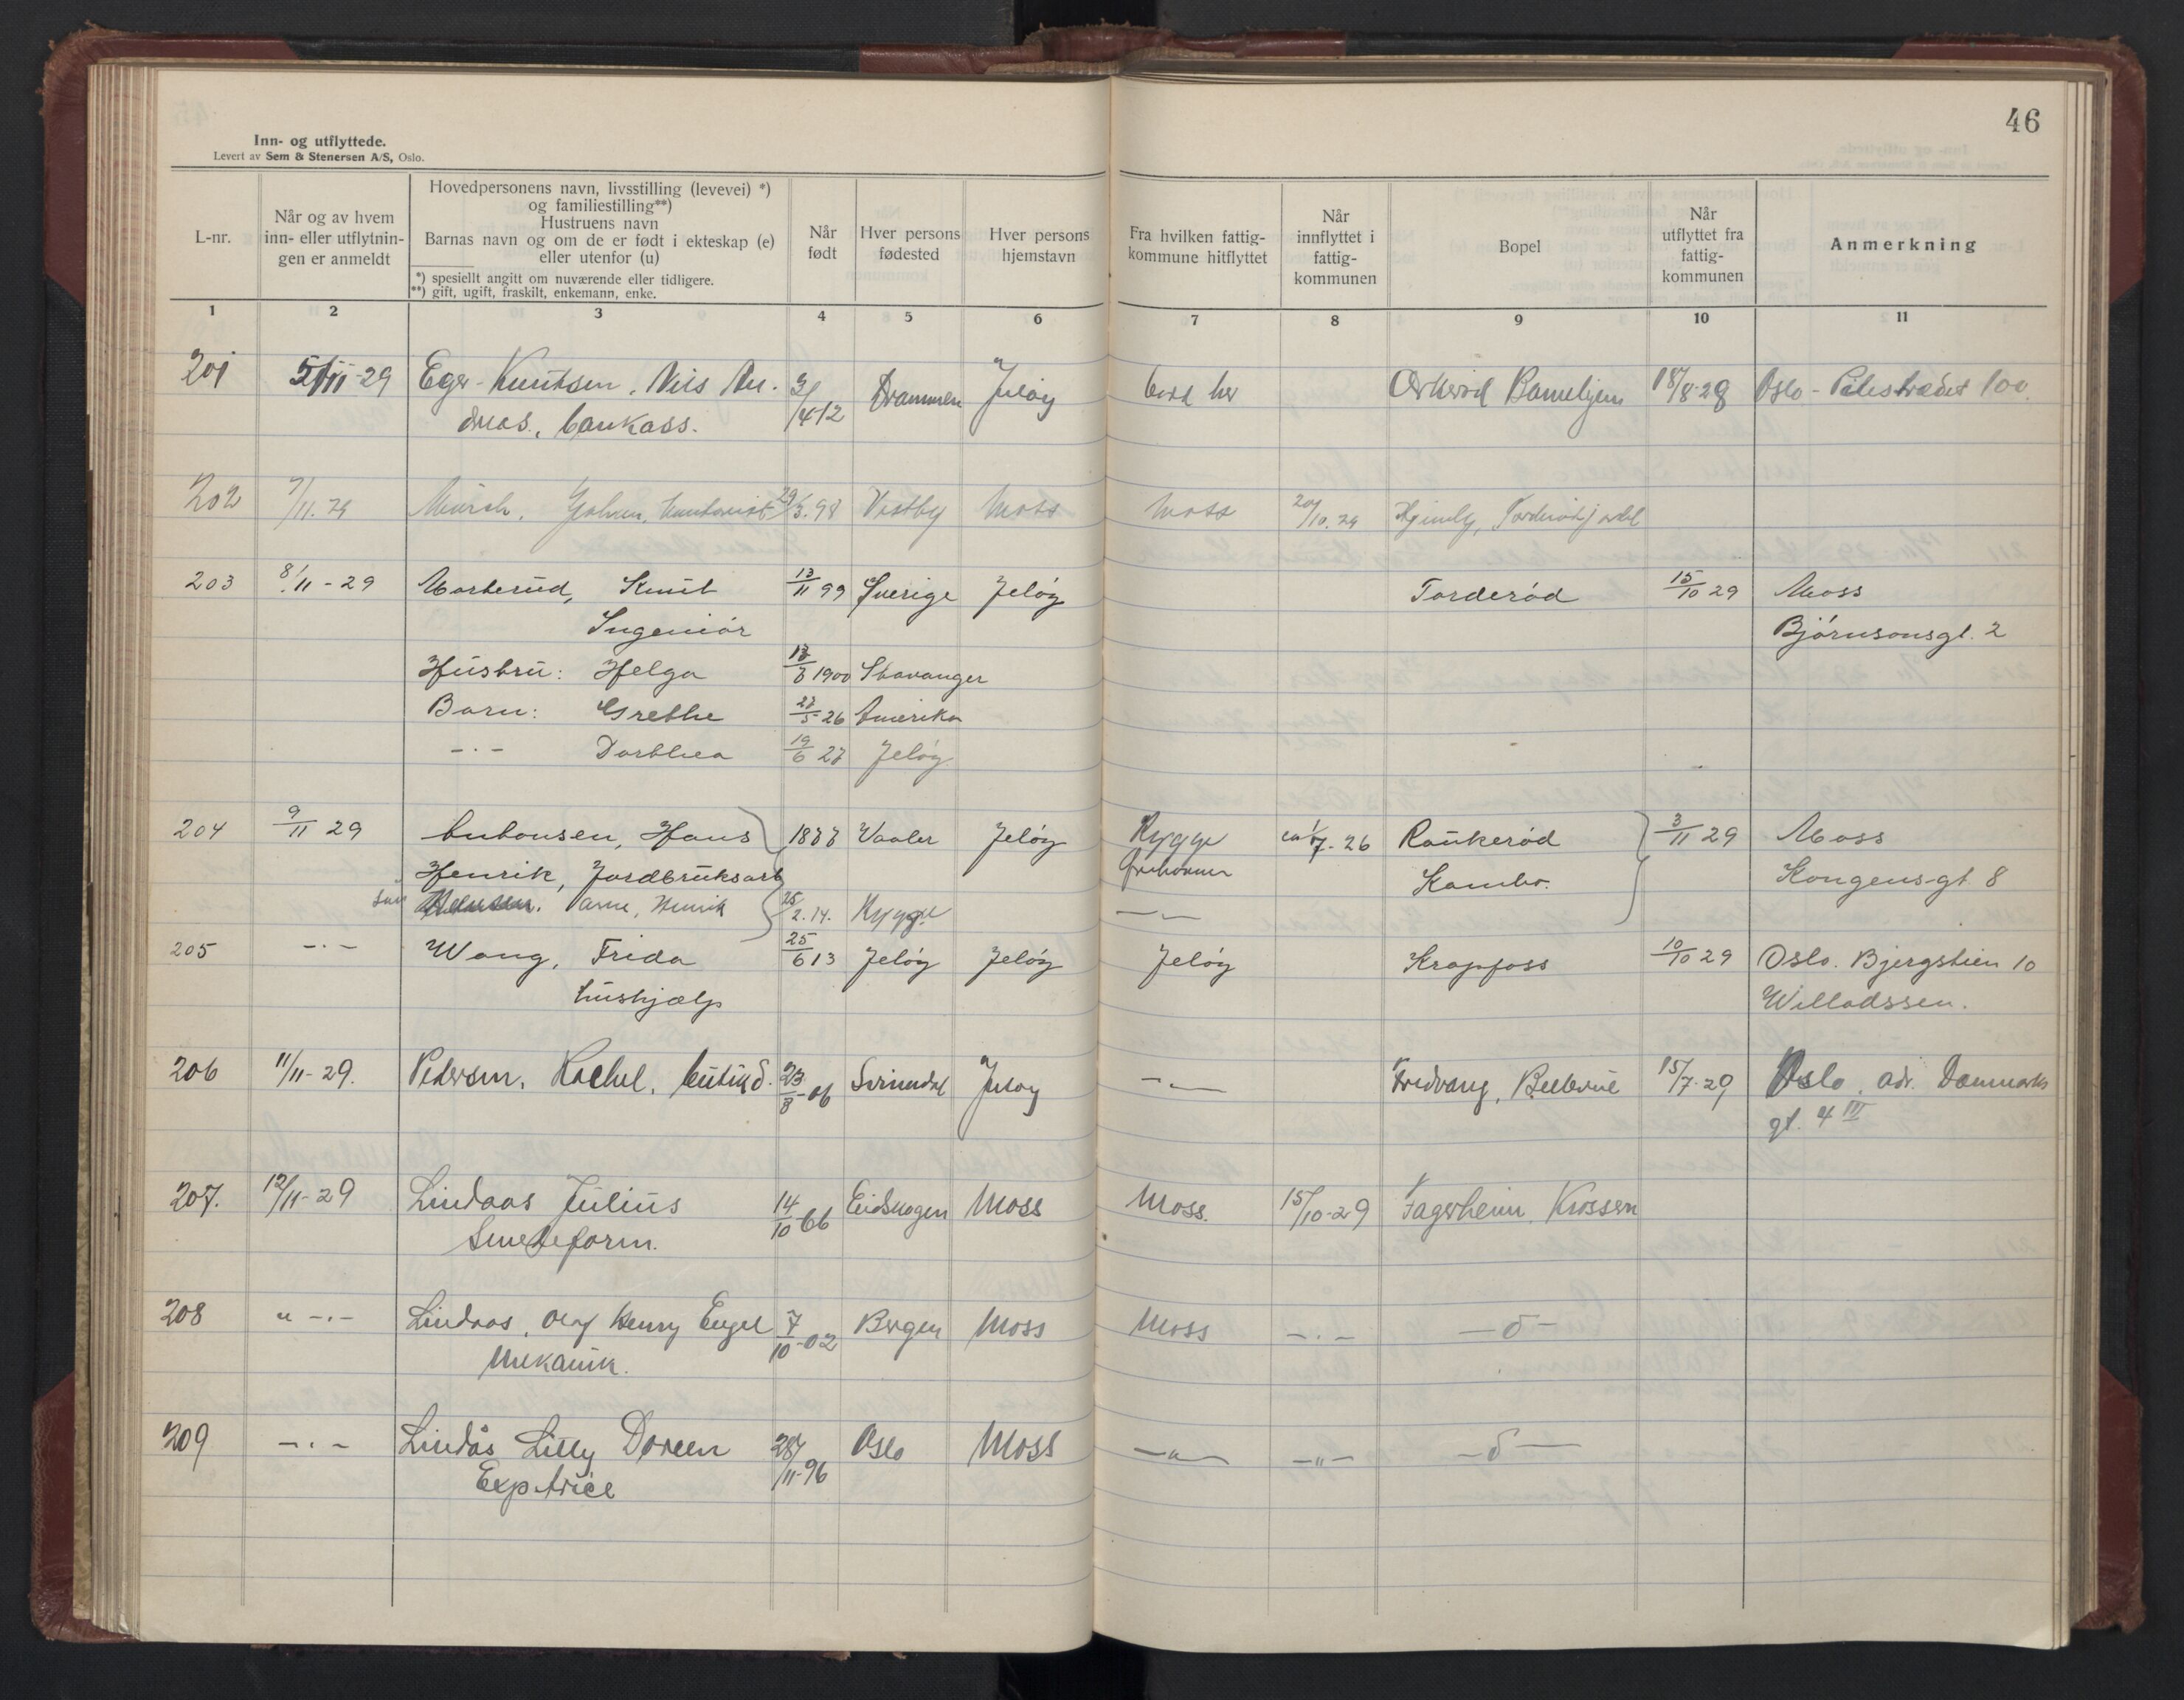 46
Inn- og utflyttede.
Levert av Sem & Stenersen A/S, Oslo.
L-nr.
Når og av hvem
inn- eller utflytnin-
gen er anmeldt
Hovedpersonens navn, livsstilling (levevei) *)
og familiestilling**)
Hustruens navn
Barnas navn og om de er født i ekteskap (e)
eller utenfor (u)
*) spesiellt angitt om nuværende eller tidligere.
**) gift, ugift, fraskilt, enkemann, enke.
Når
født
Hver persons
fødested
Hver persons
hjemstavn
Fra hvilken fattig-
kommune hitflyttet
Når
innflyttet i
fattig-
kommunen
Bopel
Når
utflyttet fra
fattig-
kommunen
Anmerkning
1 2 3 4 5 6 7 8 9 10 11
201 5/11-29 Eger-Knutsen, Nils An- 3/4 12 Drammen Jeløy 18/8-29 Oslo - Pilestrædet 100.
dreas., bankass.
202 7/11.29 29/3.98 Vestby Moss Moss 20/10.29
203 8/11-29 Morterud, Knut 13/11 99 Sverige Jeløy Torderød 15/10 29 Moss
Ingeniør Bjørnsonsgt. 2
Hustru: Helga 1900 Stavanger
Barn: Grethe 26 Amerika
-·- Dorthea 19/6 27 Jeløy
204 9/11 29 Antonsen, Hans Vaaler Jeløy Rygge ca 1/7-26 Raukerød 3/11 29 Moss
Henrik, Jordbruksarb Kambo. Kongensgt 8
Arne, Henrik 2.14. Rygge -"-
205 -·- Wang, Frida 25/6 13 Jeløy Jeløy Jeløy Krapfoss 10/10 29 Oslo. Bjergstien 10
hushjælp Willadssen.
206 11/11-29. Pedersen, Rachel, butikd. 23/8-06 Svinndal Jeløy -"- Fredvang, Bellevue 15/7-29 Oslo, adr. Danmarks
gt. 4 III
207. 12/11-29 Lindaas Julius 14/10-66 Eidskogen Moss Moss. 15/10-29 Fagerheim, Krossern
Smedeform.
208 " -·- Lindaas, Olaf Henry Engel 7/10-02 Bergen Moss Moss -·- -o-
Mekanik.
209 -·- Lindås Lilly Doreen 28/11-96 Oslo Moss -"- -"- -o-
Exp.trice